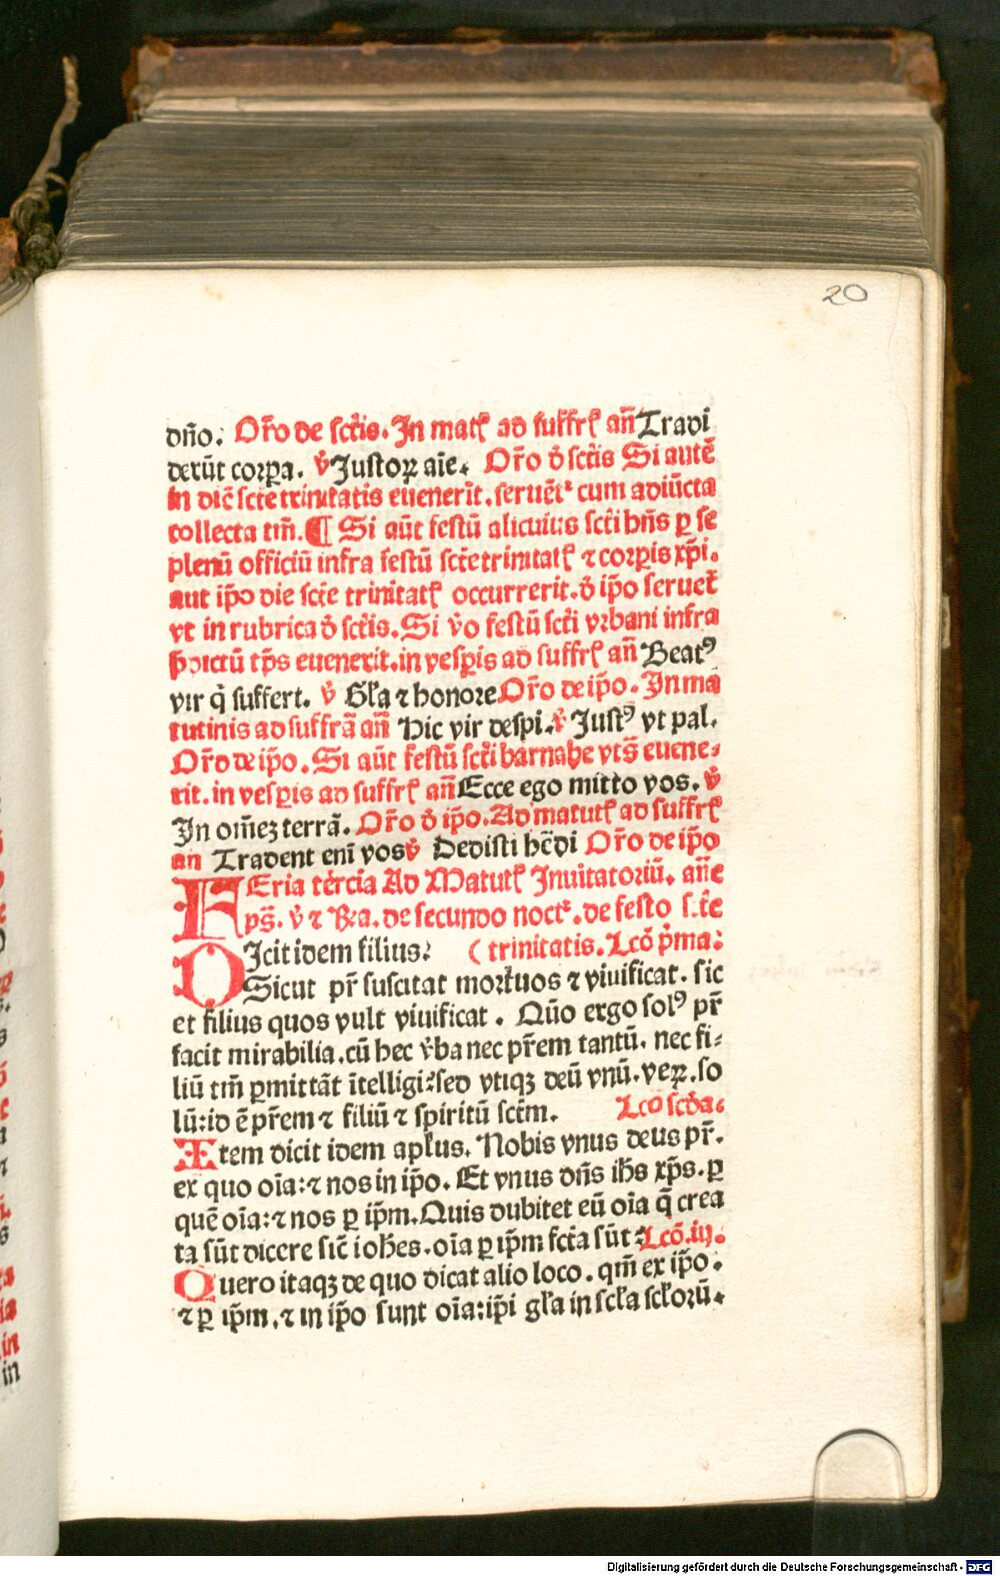 20
dn̄o. Or̄o de sctı̄s. In matꝭ ad suffrꝭ an̄ Tradi
derūt corꝑa. v̄ Justoꝝ aīe. Or̄o d̄ sctı̄s Si autē
in diē sctē trinitatis euenerit. seruēt᷑ cum adiūcta
collecta tm̄. ¶ Si aūt festū alicuius sctı̄ hn̄s ꝑ se
plenū officiū infra festū sctē trinitatꝭ ⁊ corꝑis xp̄i.
aut ip̄o die sctē trinitatꝭ occurrerit. d̄ ip̄o seruet᷑
vt in rubrica d̄ sctı̄s. Si v̄o festū sctı̄ vrbani infra
p̄dictū tp̄s euenerit. in vesꝑis ad suffrꝭ an̄ Beatꝰ
vir q̄ suffert. v̄ Gl̄a ⁊ honore Or̄o de ip̄o. In ma
tutinis ad suffrā an̄ Hic vir despi. v̄ Justꝰ vt pal.
Or̄o de ip̄o. Si aūt festū sctı̄ barnabe vts̄ euene⸗
rit. in vesꝑis ad suffrꝭ an̄ Ecce ego mitto vos. v̄
In om̄eꝫ terrā. Or̄o d̄ ip̄o. Ad matutꝭ ad suffrꝭ
an Tradent enī vos v̄ Dedisti hēdi Or̄o de ip̄o
FEria tercia Ad Matutꝭ Inuitatoriū. an̄e
ps̄. v̄ ⁊ R̄a. de secundo noct᷑. de festo sctē
DIcit idem filius: ( trinitatis. Lcō p̄ma:
Sicut pr̄ suscitat mortuos ⁊ viuificat. sic
et filius quos vult viuificat. Qn̄o ergo solꝰ pr̄
facit mirabilia. cū hec v̄ba nec pr̄em tantū. nec fi⸗
liū tm̄ ꝑmittāt ītelligi: sed vtiqꝫ deū vnū. veꝝ. so
lū: id ē pr̄em ⁊ filiū ⁊ spiritū sctm̄. Lcō scd̄a.
Item dicit idem apl̄us. Nobis vnus deus pr̄.
ex quo oı̄a: ⁊ nos in ip̄o. Et vnus dn̄s ih̄s xp̄s. ꝑ
quē oı̄a: ⁊ nos ꝑ ip̄m. Quis dubitet eū oı̄a q̄ crea
ta sūt dicere sic̄ ioh̄es. oı̄a ꝑ ip̄m fctā sūt: Lcō. iij.
Quero itaqꝫ de quo dicat alio loco. qm̄ ex ip̄o.
⁊ ꝑ ip̄m. ⁊ in ip̄o sunt oı̄a: ip̄i gl̄a in scl̄a scl̄orū.
Digitalisierung gefördert durch die Deutsche Forschungsgemeinschaft - DFG